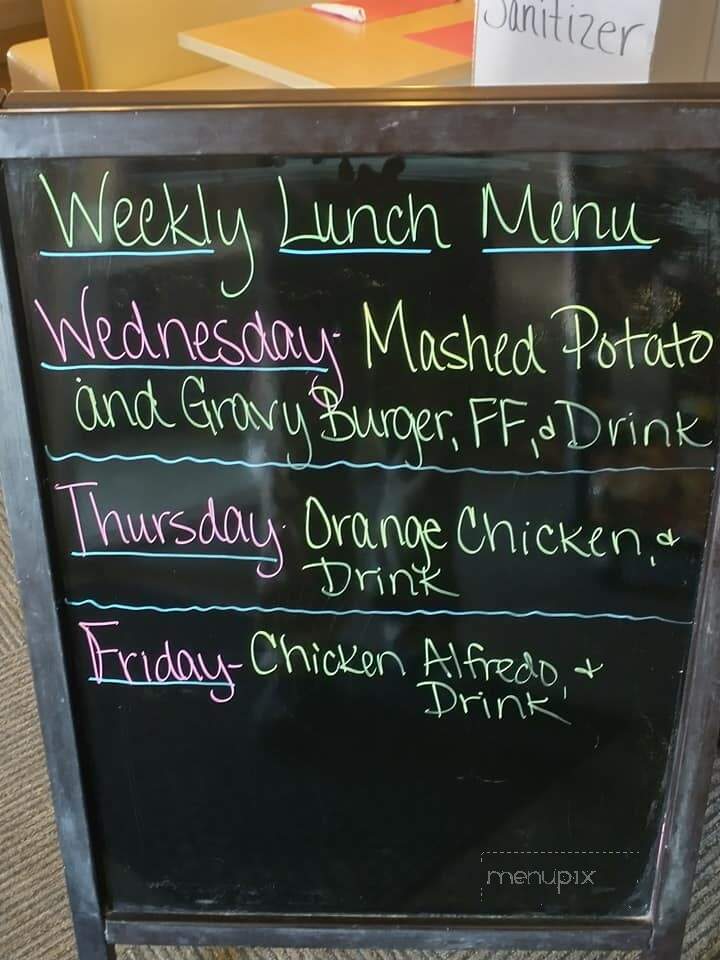 Sanitizer
Weekly Lunch Menu
Wednesday- Mashed Potato
and Gravy Burger, FF, & Drink
Thursday- Orange Chicken, &
Drink
Friday- Chicken Alfredo, &
Drink
menupix